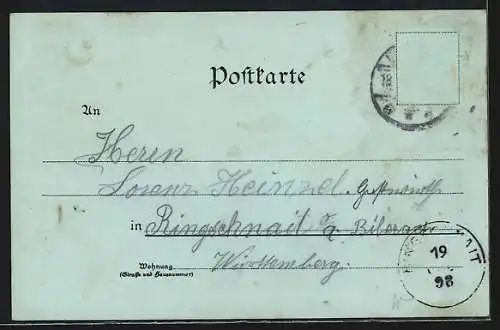 Postkarte
An
Herrn
Lorenz Heinzel Gastwirth
in Ringschnait o/a Biberach
Württemberg.
Wohnung
(Straße und Hausnummer)
19
98